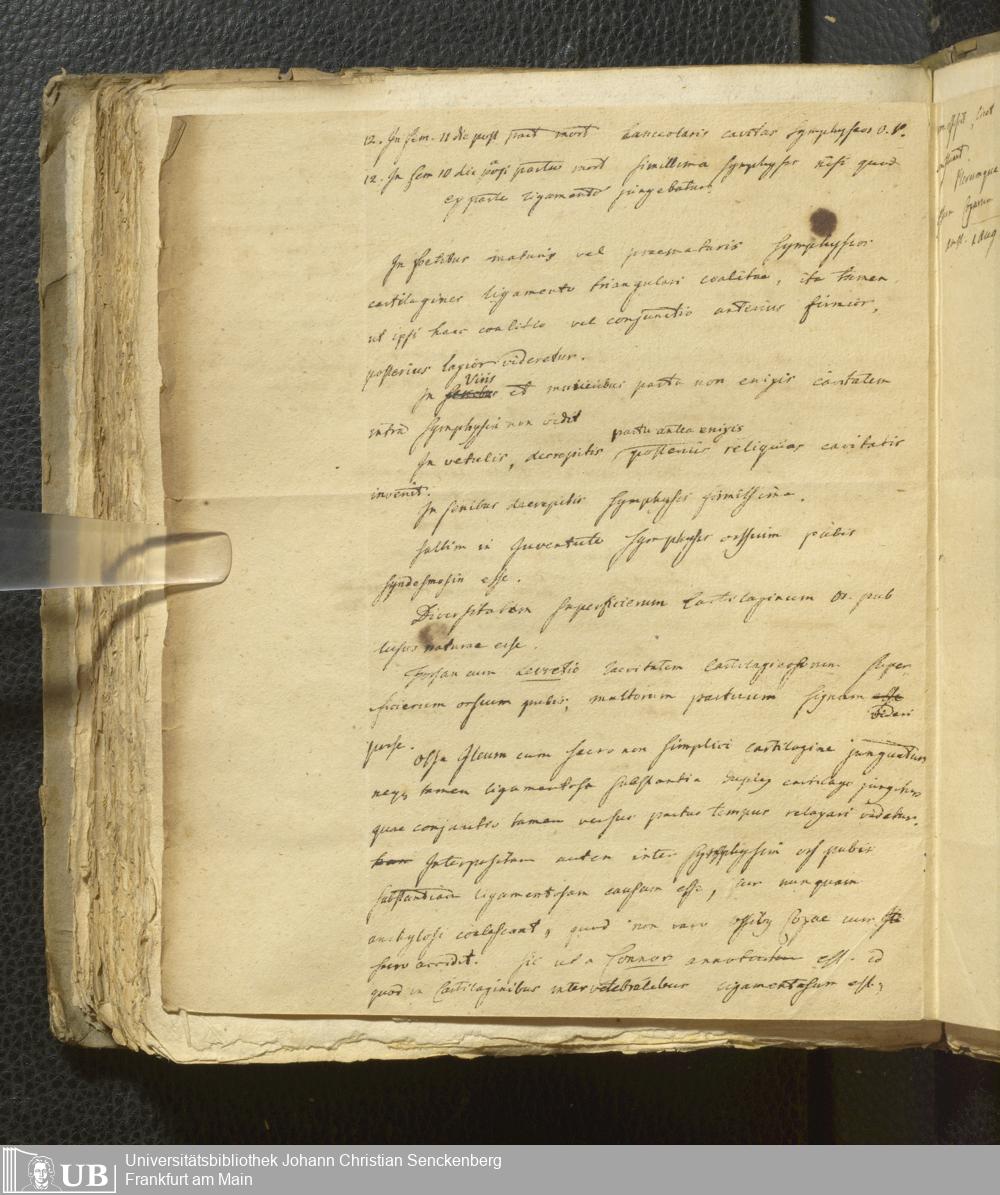 12. In fem. 11 die post part mort lanceolaris cavitas Symphyseos O. P.
12. In fem 10 die post partu mort simillima Symphysis nisi quod
ex parte ligamento jungebatur
In foetibus maturis vel praematuris Symphyseos
cartilagines ligamento triangulari coalitae, ita tamen
ut ipsi haec coalitio vel conjunctio anterius firmior,
posterius laxior videretur.
Viris
In et mulieribus partu non enixis cavitatem
intra Symphysin non vidit
partu antea enixis
In vetulis, decrepitis posterius reliquias cavitatis
invenit.
In senibus decrepitis Symphysis firmissima.
saltim in Juventute Symphysis ossium pubis
syndesmosin esse.
Diversitatem superficierum Cartilaginum os. pub
lusus naturae esse.
Forsan cum Levretio laevitatem Cartilaginosarum super-
ficierum ossium pubis, multorum partuum signum esse
videri
posse.
Ossa Ileum cum sacro non simplici cartilagine junguntur
neq tamen ligamentosa substantia duplex cartilago jungitur
quae conjunctio tamen versus partus tempus relaxari videtur.
Interpositam autem inter Symphysin oss pubis
substantiam ligamentosam causam esse, cur nunquam
anchylosi coalescant, quod non raro ossibus Coxae cum
sacro accidit. sic ut a Connor annotatum est. id
quod in Cartilaginibus intervertebralibus ligamentosum est,
Plerumque
Aug
Universitätsbibliothek Johann Christian Senckenberg
Frankfurt am Main
UB